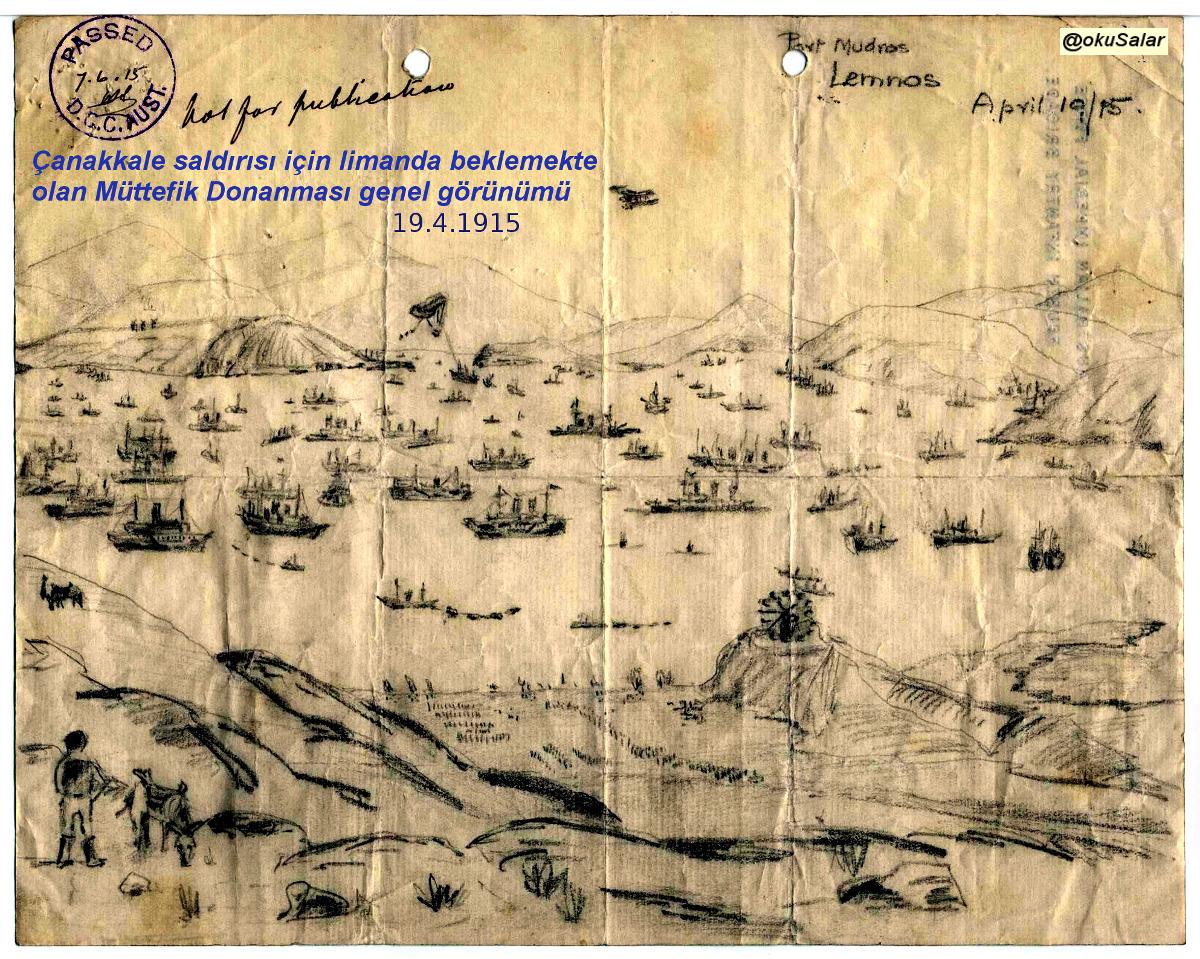 PASSED
7.6.15
D.C.C. AUST.
Not for publication
Port Mudros
Lemnos
April 19/15.
@okuSalar
Çanakkale saldırısı için limanda beklemekte
olan Müttefik Donanması genel görünümü
19.4.1915